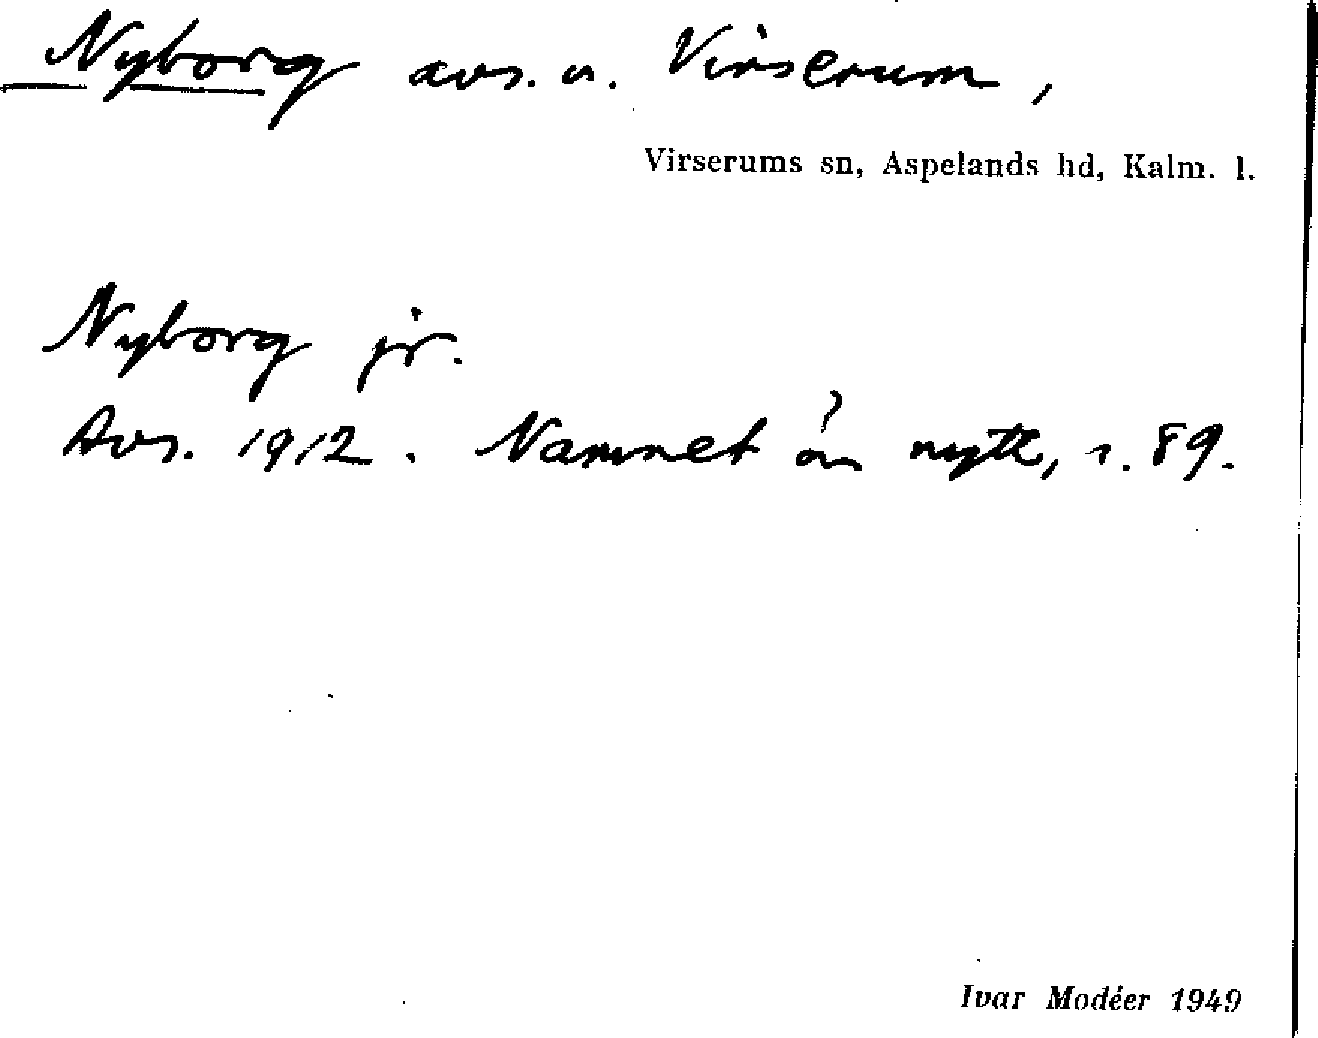 Nyborg avs. u. Virserum,
Virserums sn, Aspelands hd, Kalm. l.
Nyborg jr.
Avs. 1912. Namnet är nytt, s. 89.
Ivar Modéer 1949